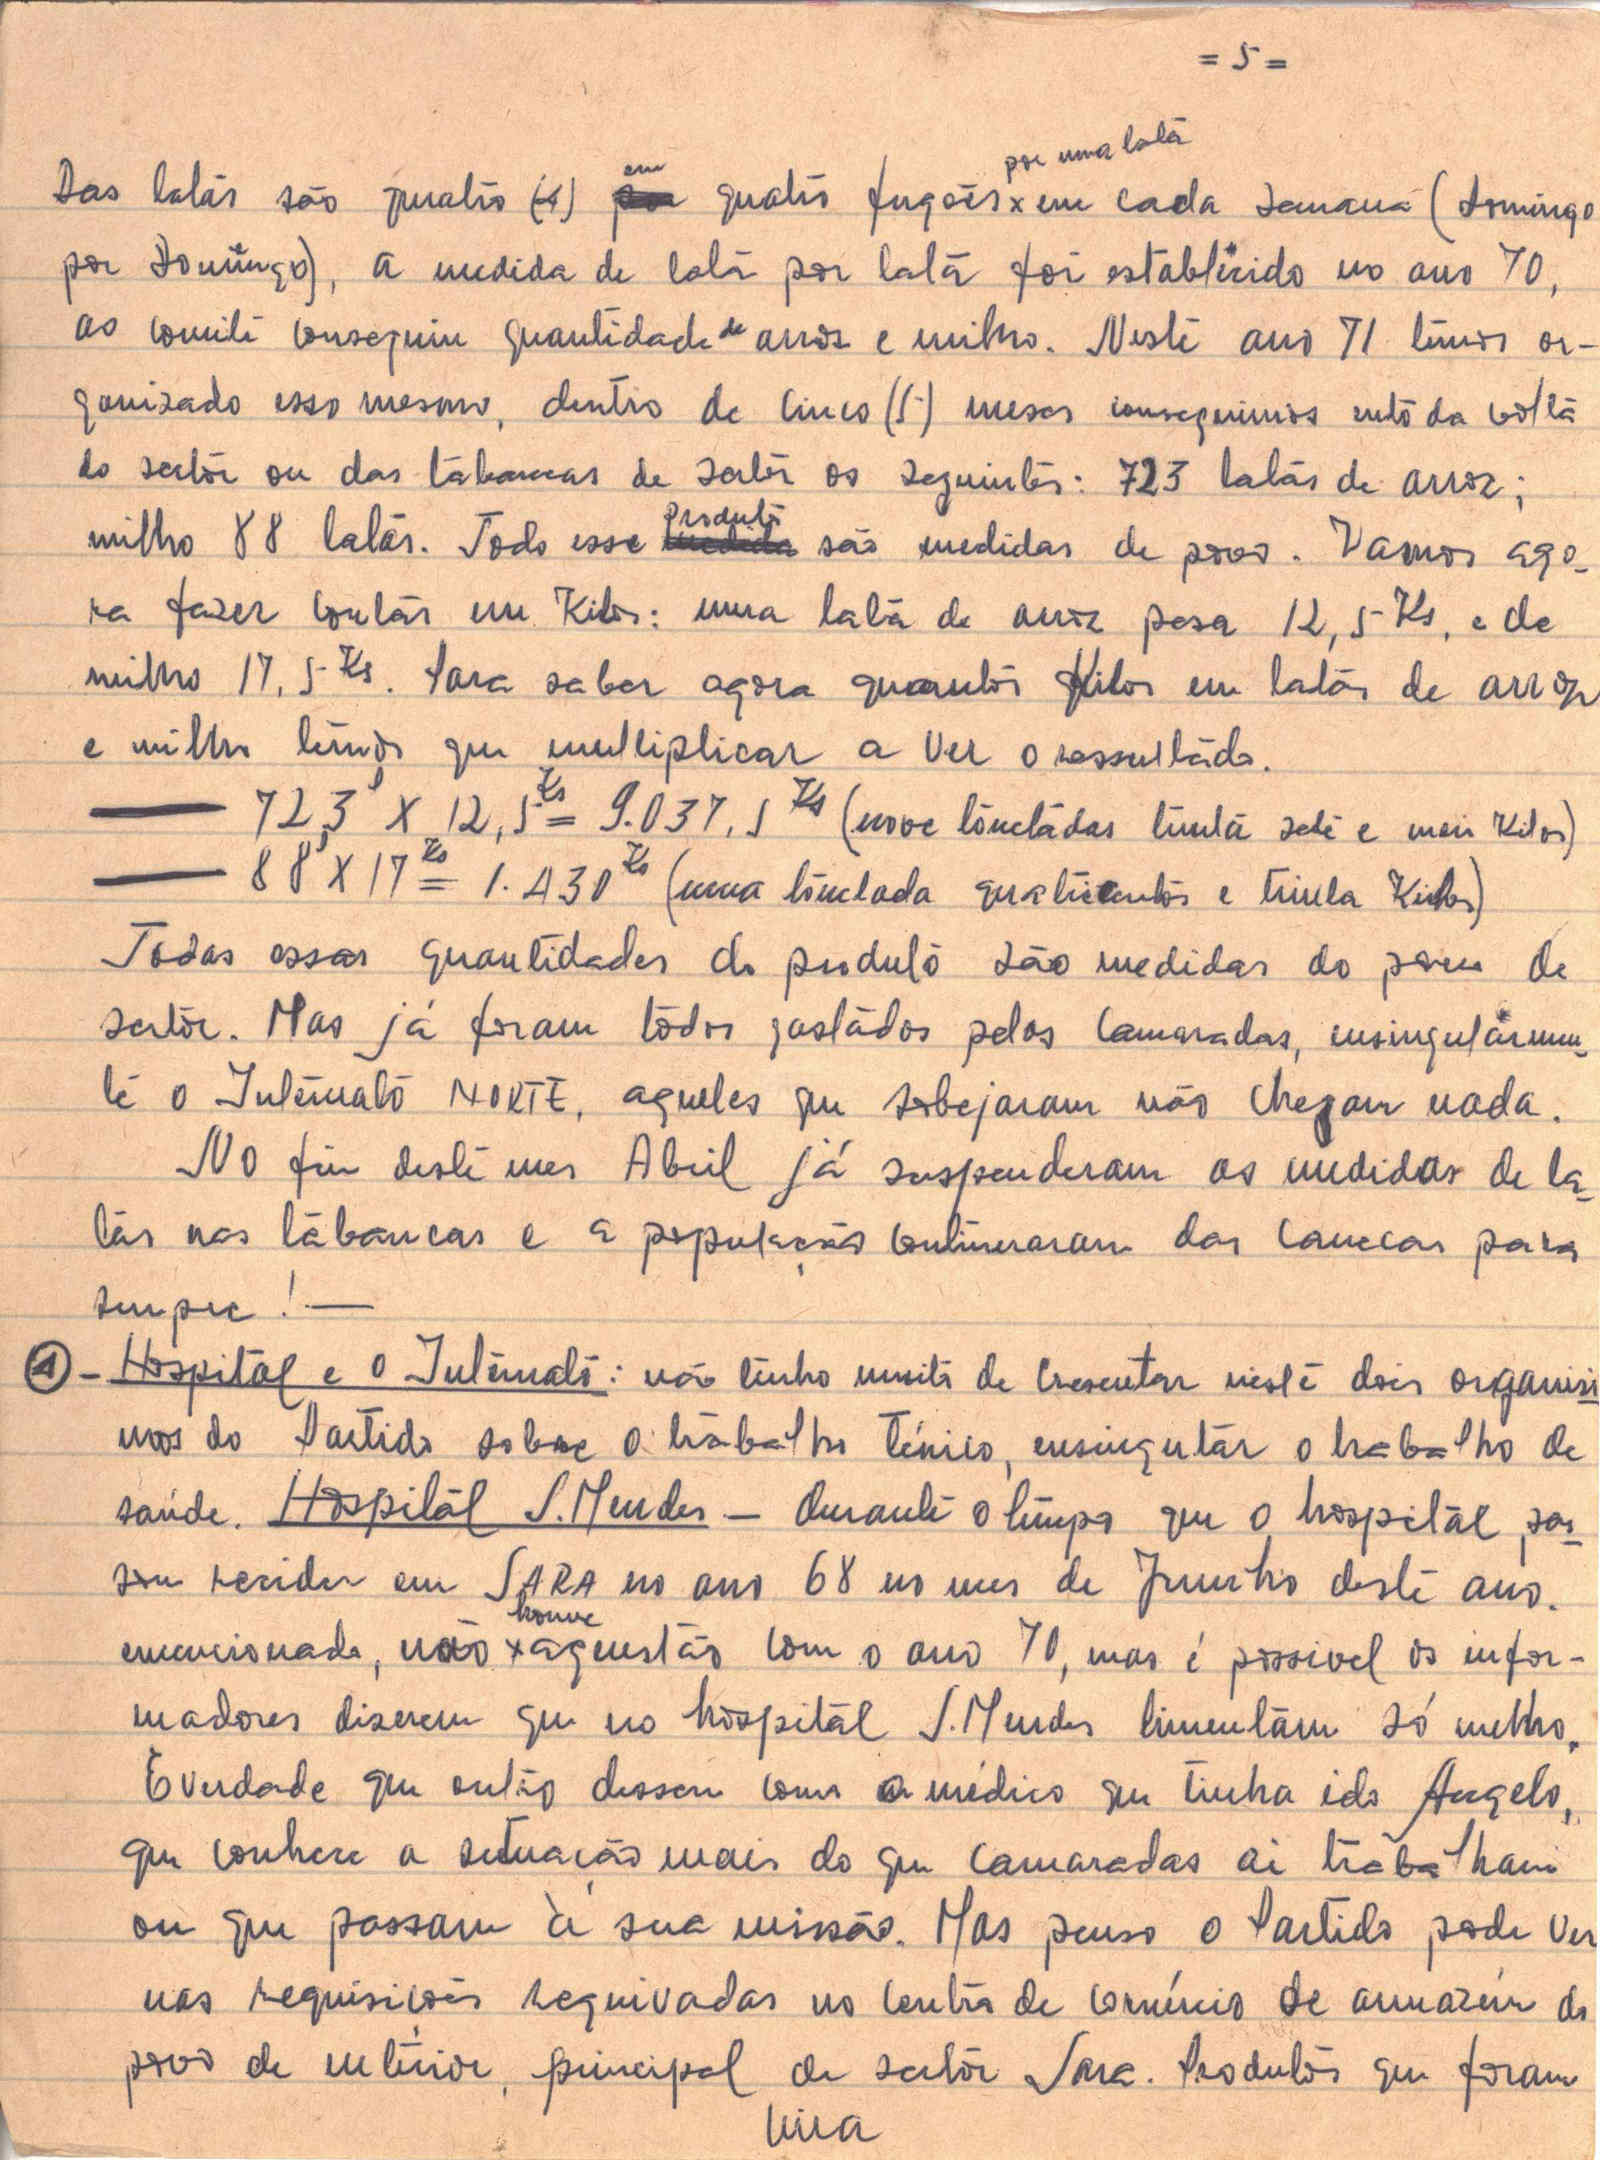 = 5 =
Das latas são quatro (4) em quatro fugões x por uma lata em cada semana (domingo
por Domingo), a medida de lata por lata foi establicido no ano 70,
ao comite conseguiu quantidade de arroz e milho. Neste ano 71 temos or-
ganizado esso mesmo, dentro de cinco (5) meses conseguimos da volta
do sector ou das tabancas de sector os seguintes: 723 latas de arroz;
milho 88 latas. Todo esse produto são medidas de povo. Vamos ago-
ra fazer contas em Kilos: uma lata de arroz pesa 12,5 Ks, e de
milho 17,5 Ks. Para saber agora quantos Kilos em latas de arroz
e milho temos que multiplicar a ver o ressultado.
— 723 X 12,5 Ks = 9.037,5 Ks (nove toneladas trinta sete e meu Kilos)
— 88 X 17 Ks = 1.430 Ks (uma tonelada quatrocentos e trinta Kilos)
Todas essas quantidades do produto são medidas do povu de
sector. Mas já foram todos gastados pelos Camaradas, ensingularmen-
te o Internato NORTE, aqueles que sobejaram não chegam nada.
No fim deste mes Abril já suspenderam as medidas de la-
tas nas tabancas e a população continuaram das canecas para
sempre! —
4 - Hospital e o Internato: não tenho muito de crescentar neste dois organisi
mos do Partido sobre o trabalho ténico, ensingular o trabalho de
saúde. Hospital S. Mendes — durante o tempo que o hospital pas-
sou residir em SARA no ano 68 no mes de Junnho deste ano.
emencionado, não x houve aquestão com o ano 70, mas é possivel os infor-
madores dizerem que no hospital S. Mendes limentam só melho.
É verdade que então dessem como o médico que tinha ido Angelo,
que conhece a situação mais do que camaradas ai trabalham
ou que passam à sua missão. Mas penso o Partido pode ver
nas requisicões requivadas no centro de comércio de armazém do
povo de interior, principal de sector Sara. Produtos que foram
Vira